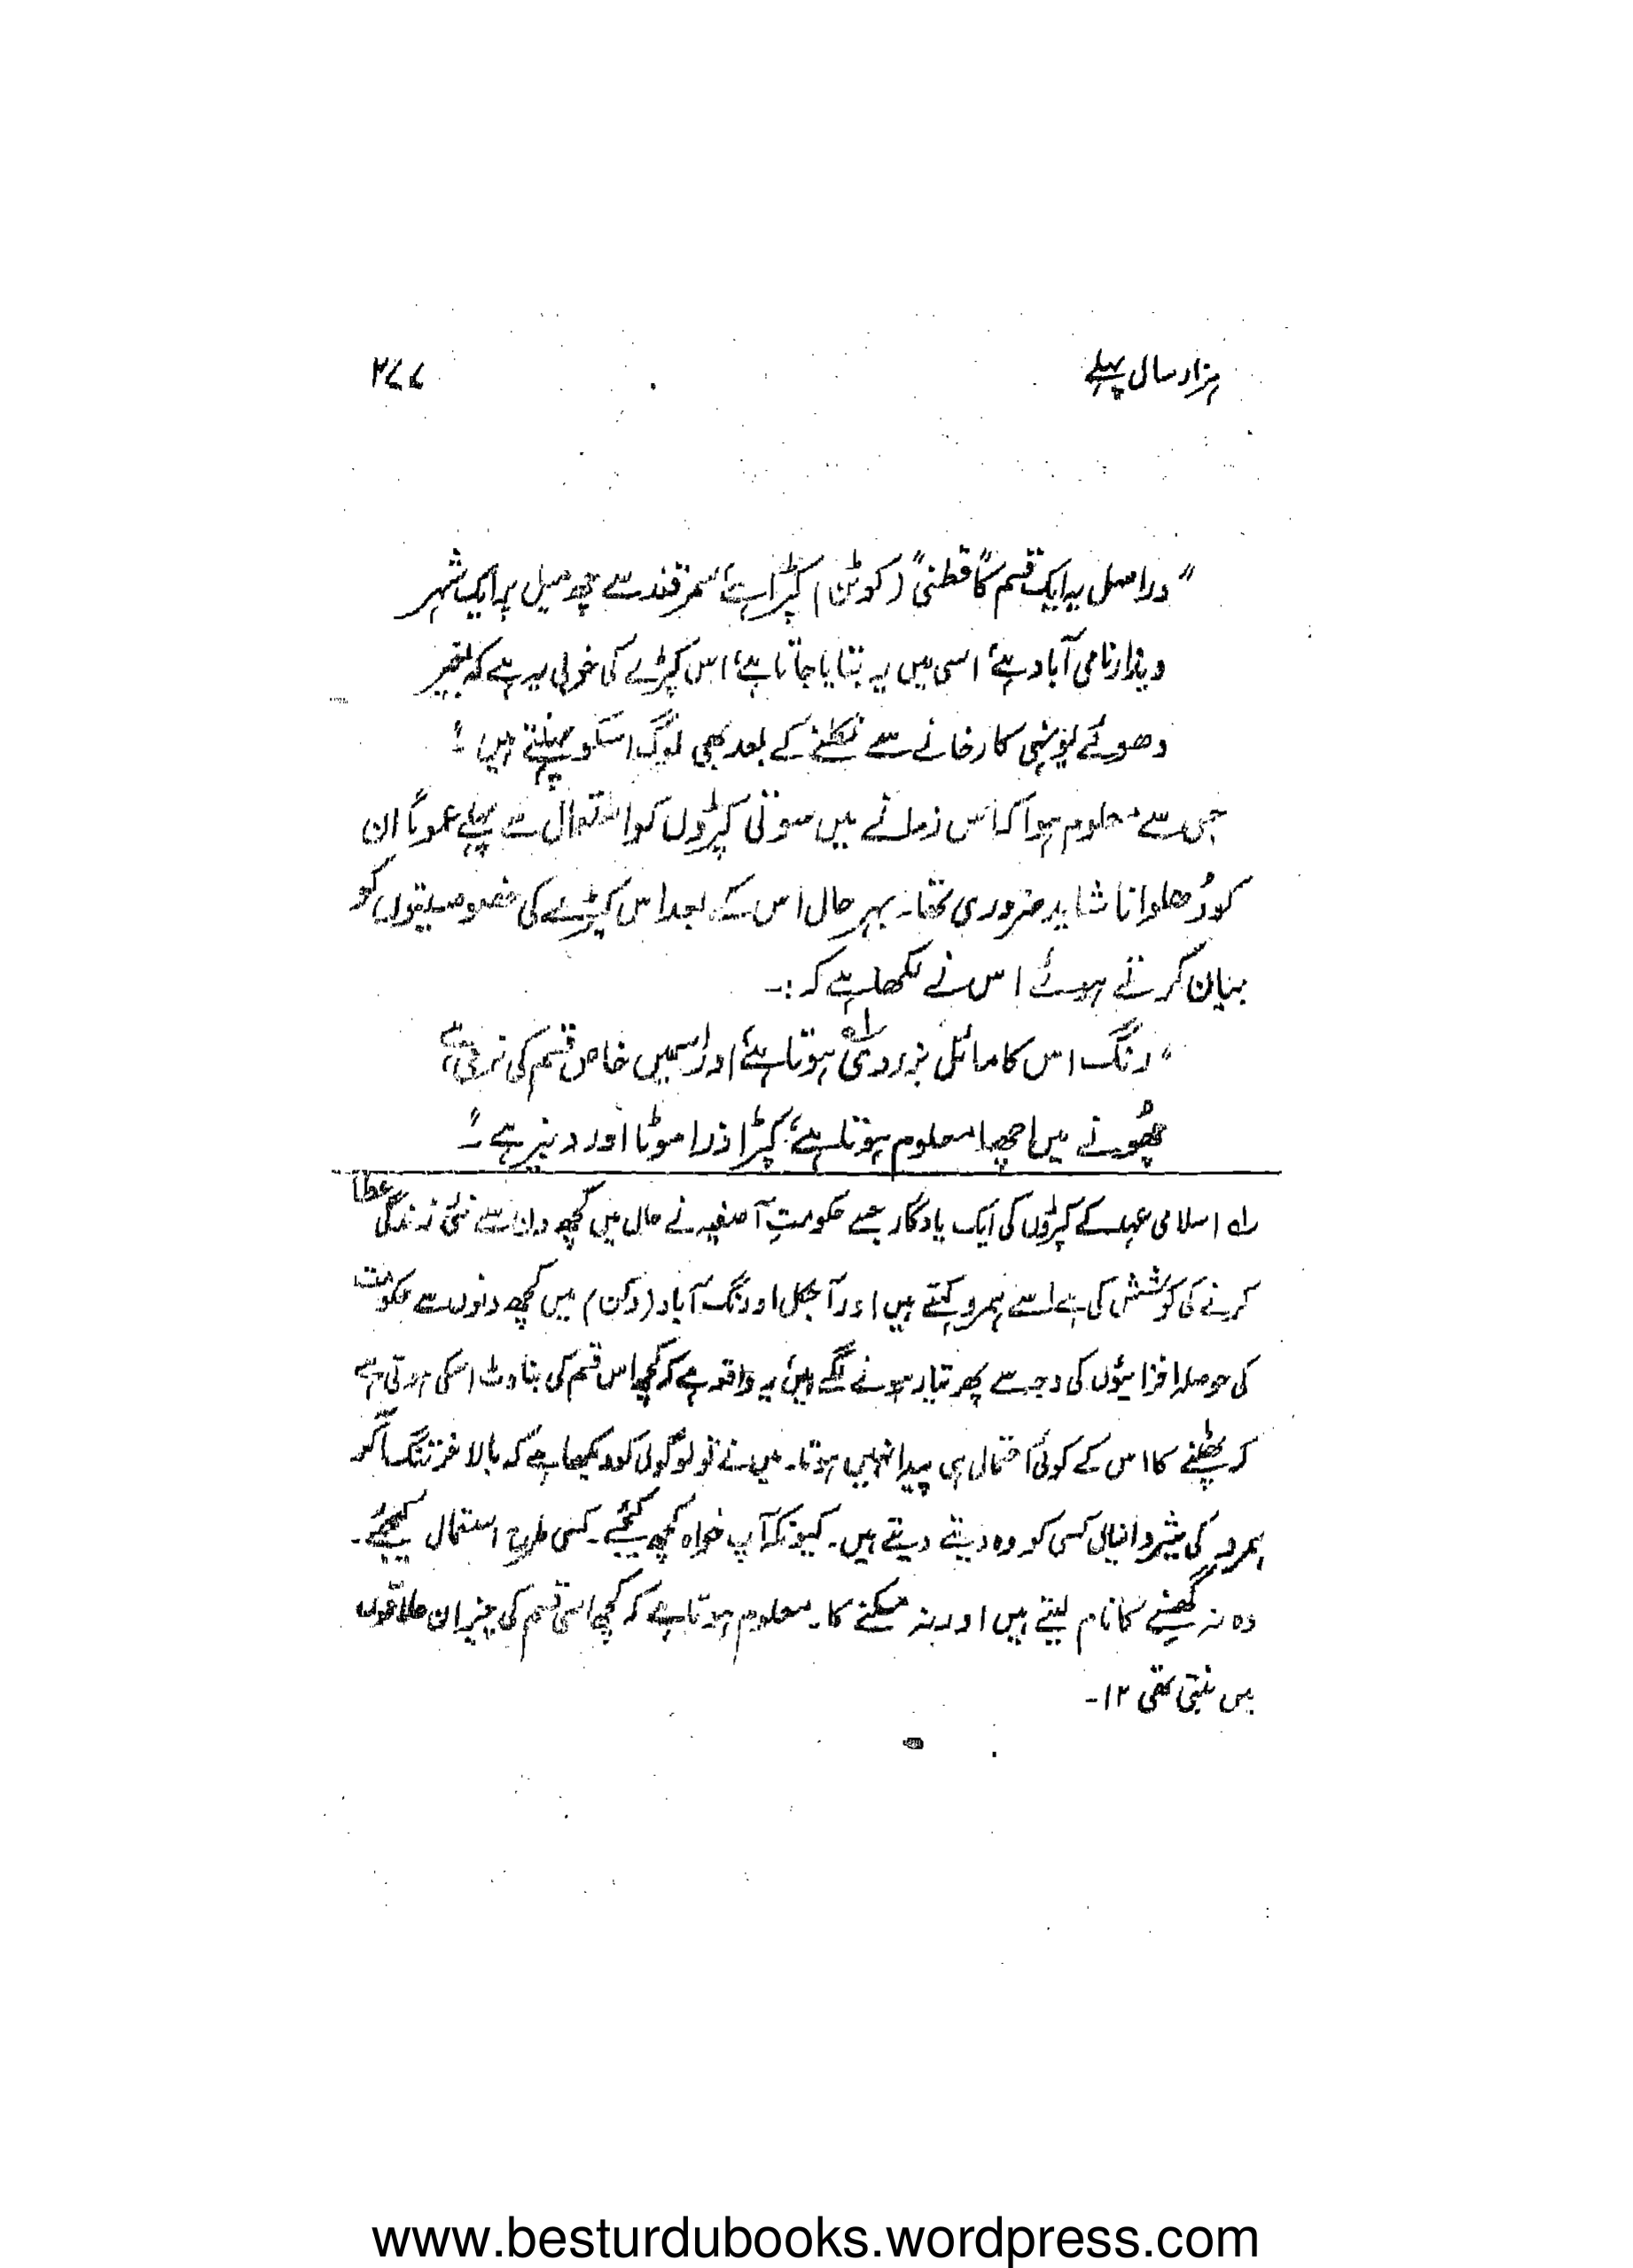 ہزار سال پہلے
۲۷۷
"دراصل یہ ایک قسم کا "قطنی" (کوٹن) کپڑا ہے، سمرقند سے چھ میل پر ایک شہر
ویذار نامی آباد ہے، اسی میں یہ بنایا جاتا ہے، اس کپڑے کی خوبی یہ ہے کہ بغیر
دھوئے یونہی کارخانے سے نکلنے کے بعد بھی لوگ اسکو پہنتے ہیں"
جس سے معلوم ہوا کہ اس زمانے میں سوتی کپڑوں کو استعمال سے پہلے عموماً ان
کو دُھلوانا شاید ضروری تھا۔ بہر حال اس کے بعد اس کپڑے کی خصوصیتوں کو
بیان کرتے ہوئے اس نے لکھا ہے کہ:۔
"رنگ اس کا مائل بزردی ؎۱ ہوتا ہے، اور اسمیں خاص قسم کی نرمی ہے،
چھُونے میں اچھا معلوم ہوتا ہے، کپڑا ذرا موٹا اور دبیز ہے"
؎۱ اسلامی عہد کے کپڑوں کی ایک یادگار جسے حکومتِ آصفیہ نے حال میں کچھ دن سے نئی زندگی عطا
کرنے کی کوشش کی ہے اسے ہمرو کہتے ہیں اور آجکل اورنگ آباد (دکن) میں کچھ دنوں سے حکومت
کی حوصلہ افزائیوں کی وجہ سے پھر تیار ہونے لگے ہیں، یہ واقعہ ہے کہ کچھ اس قسم کی بناوٹ اسکی ہوتی ہے
کہ پھٹنے کا اس کے کوئی احتمال ہی پیدا نہیں ہوتا۔ میں نے تو لوگوں کو دیکھا ہے کہ بالآخر تنگ آکر
ہمرو کی شیروانیاں کسی کو وہ دیتے دیتے ہیں۔ کیونکہ آپ خواہ کچھ کیجئے۔ کسی طرح استعمال کیجئے۔
وہ نہ گھِسنے کا نام لیتے ہیں اور نہ مسکنے کا۔ معلوم ہوتا ہے کہ کچھ اسی قسم کی چیز ان علاقوں
میں بنتی تھی ۱۲۔
www.besturdubooks.wordpress.com